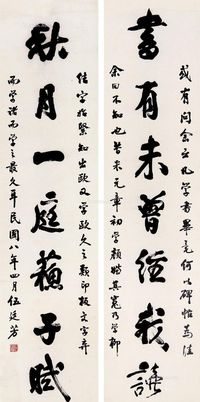 或有問余云凡學書畢竟何以碑怗為佳
書有未曾經我讀
余曰不知也昔米元章初學顏嗣其寬乃學柳
佳字始緊知出歐又學歐久之類印板文字弃
秋月一庭蘇子賦
而學褚而學之最久年民國八年四月伍廷芳